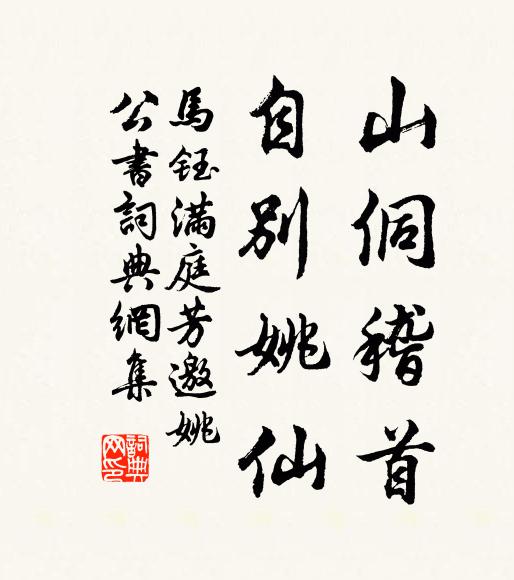 山侗稽首
自別姚仙
馬鈺滿庭芳邀姚
公書詞典網集
詞典
网印